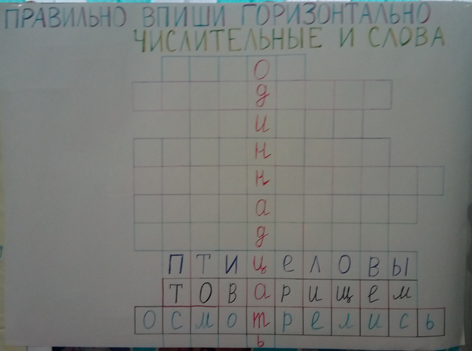 ПРАВИЛЬНО ВПИШИ ГОРИЗОНТАЛЬНО
ЧИСЛИТЕЛЬНЫЕ И СЛОВА
О
д
и
н
н
а
д
птицеловы
товарищем
осмотрелись
ь